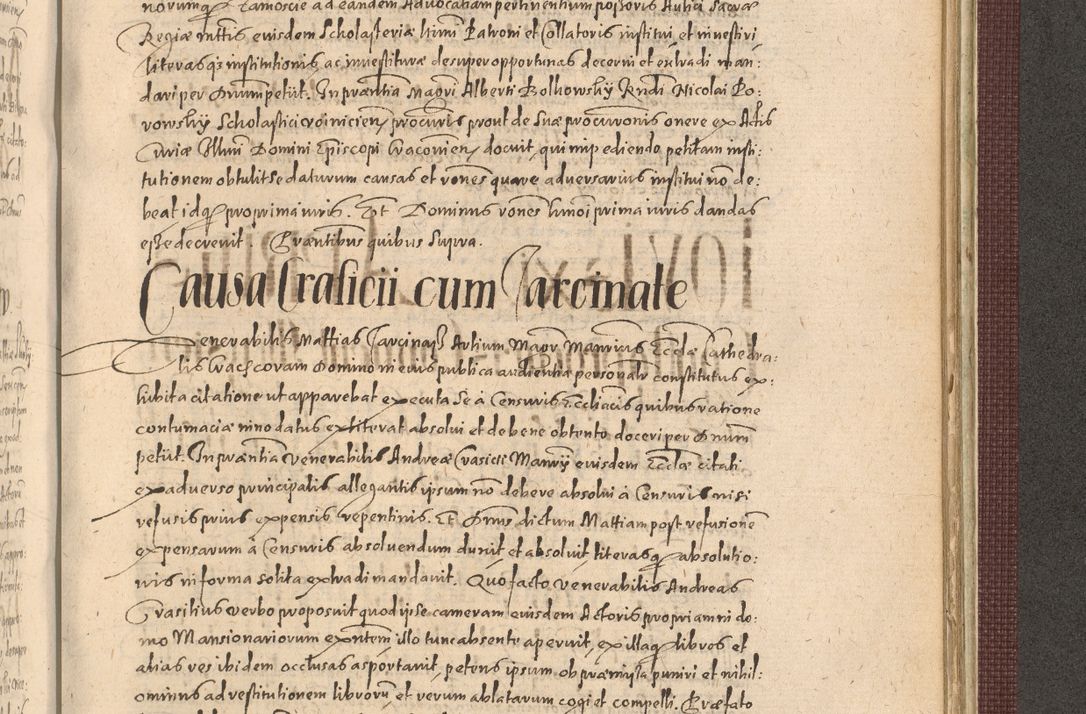 norumq₃ Zamoscie ad eandem Advocatiam pertinentium possoris Aulici Sacræ
Regiæ mttis eiusdem Scholasteriæ ltimi Patroni et Collatoris institui et investiri
literasq₃ institutionis ac investituræ desuper opportunas decerni et extradi man:
dari per Dnum petiit. In præntia Magri Alberti Bolkowsky Rndi Nicolai Bo:
rowsky Scholastici voinicien procuris prout de suæ procuronis onere ex Actis
Curiæ Illmi Domini Episcopi Cracovien docuit, qui impediendo petitam insti:
tutionem obtulit se daturum causas et rones quare adversarius institui no de:
beat idq₃ pro prima iuris. Et Dominus rones hmoi prima iuris dandas
esse decrevit. Præntibus quibus supra.
Causa Crasicii cum Carcinale
Venerabilis Mattias Carcinas Artium Magr Manrius Ecclæ Cathedra:
lis Crac coram Domino in eius publica audientia personalr constitutus ex:
hibita citatione ut apparebat executa se a Censuris Eccliacis quibus ratione
contumaciæ in no datus extiterat absolvi et de bene obtento doceri per Dnum
petiit. In præntia venerabilis Andreæ Crasicii Manrij eiusdem Ecclæ citati
ex adverso principalis allegantis ipsum no debere absolvi à Censuris nisi
refusis prius expensis repentinis. Et Dnus dictum Mattiam post refusionē
expensarum à Censuris absolvendum duxit et absolvit literasq₃ absolutio:
nis in forma solita extradi mandavit. Quo facto, venerabilis Andreas
Crasitius verbo proposuit quod ipse cameram eiusdem Actoris propriam in do:
mo Mansionariorum exntem illo tunc absente aperuit, ex illaq₃ libros et
alias res ibidem occlusas asportavit, petens ipsum ob præmissa puniri et nihil:
ominus ad restitutionem librorum et rerum ablatarum cogi et compelli. Præfato